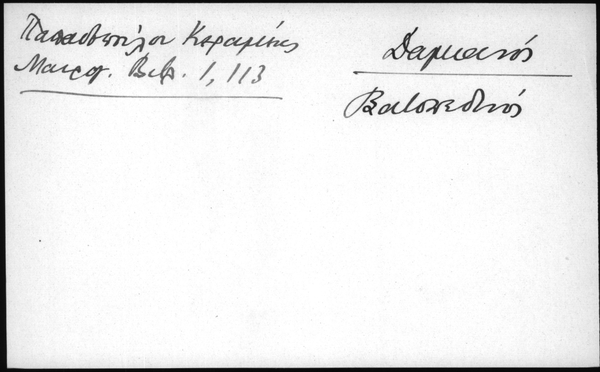 Παπαδοπούλου Κεραμέως
Μαυρογ. Βιβ. 1, 113
Δαμιανός
Βατοπεδινός